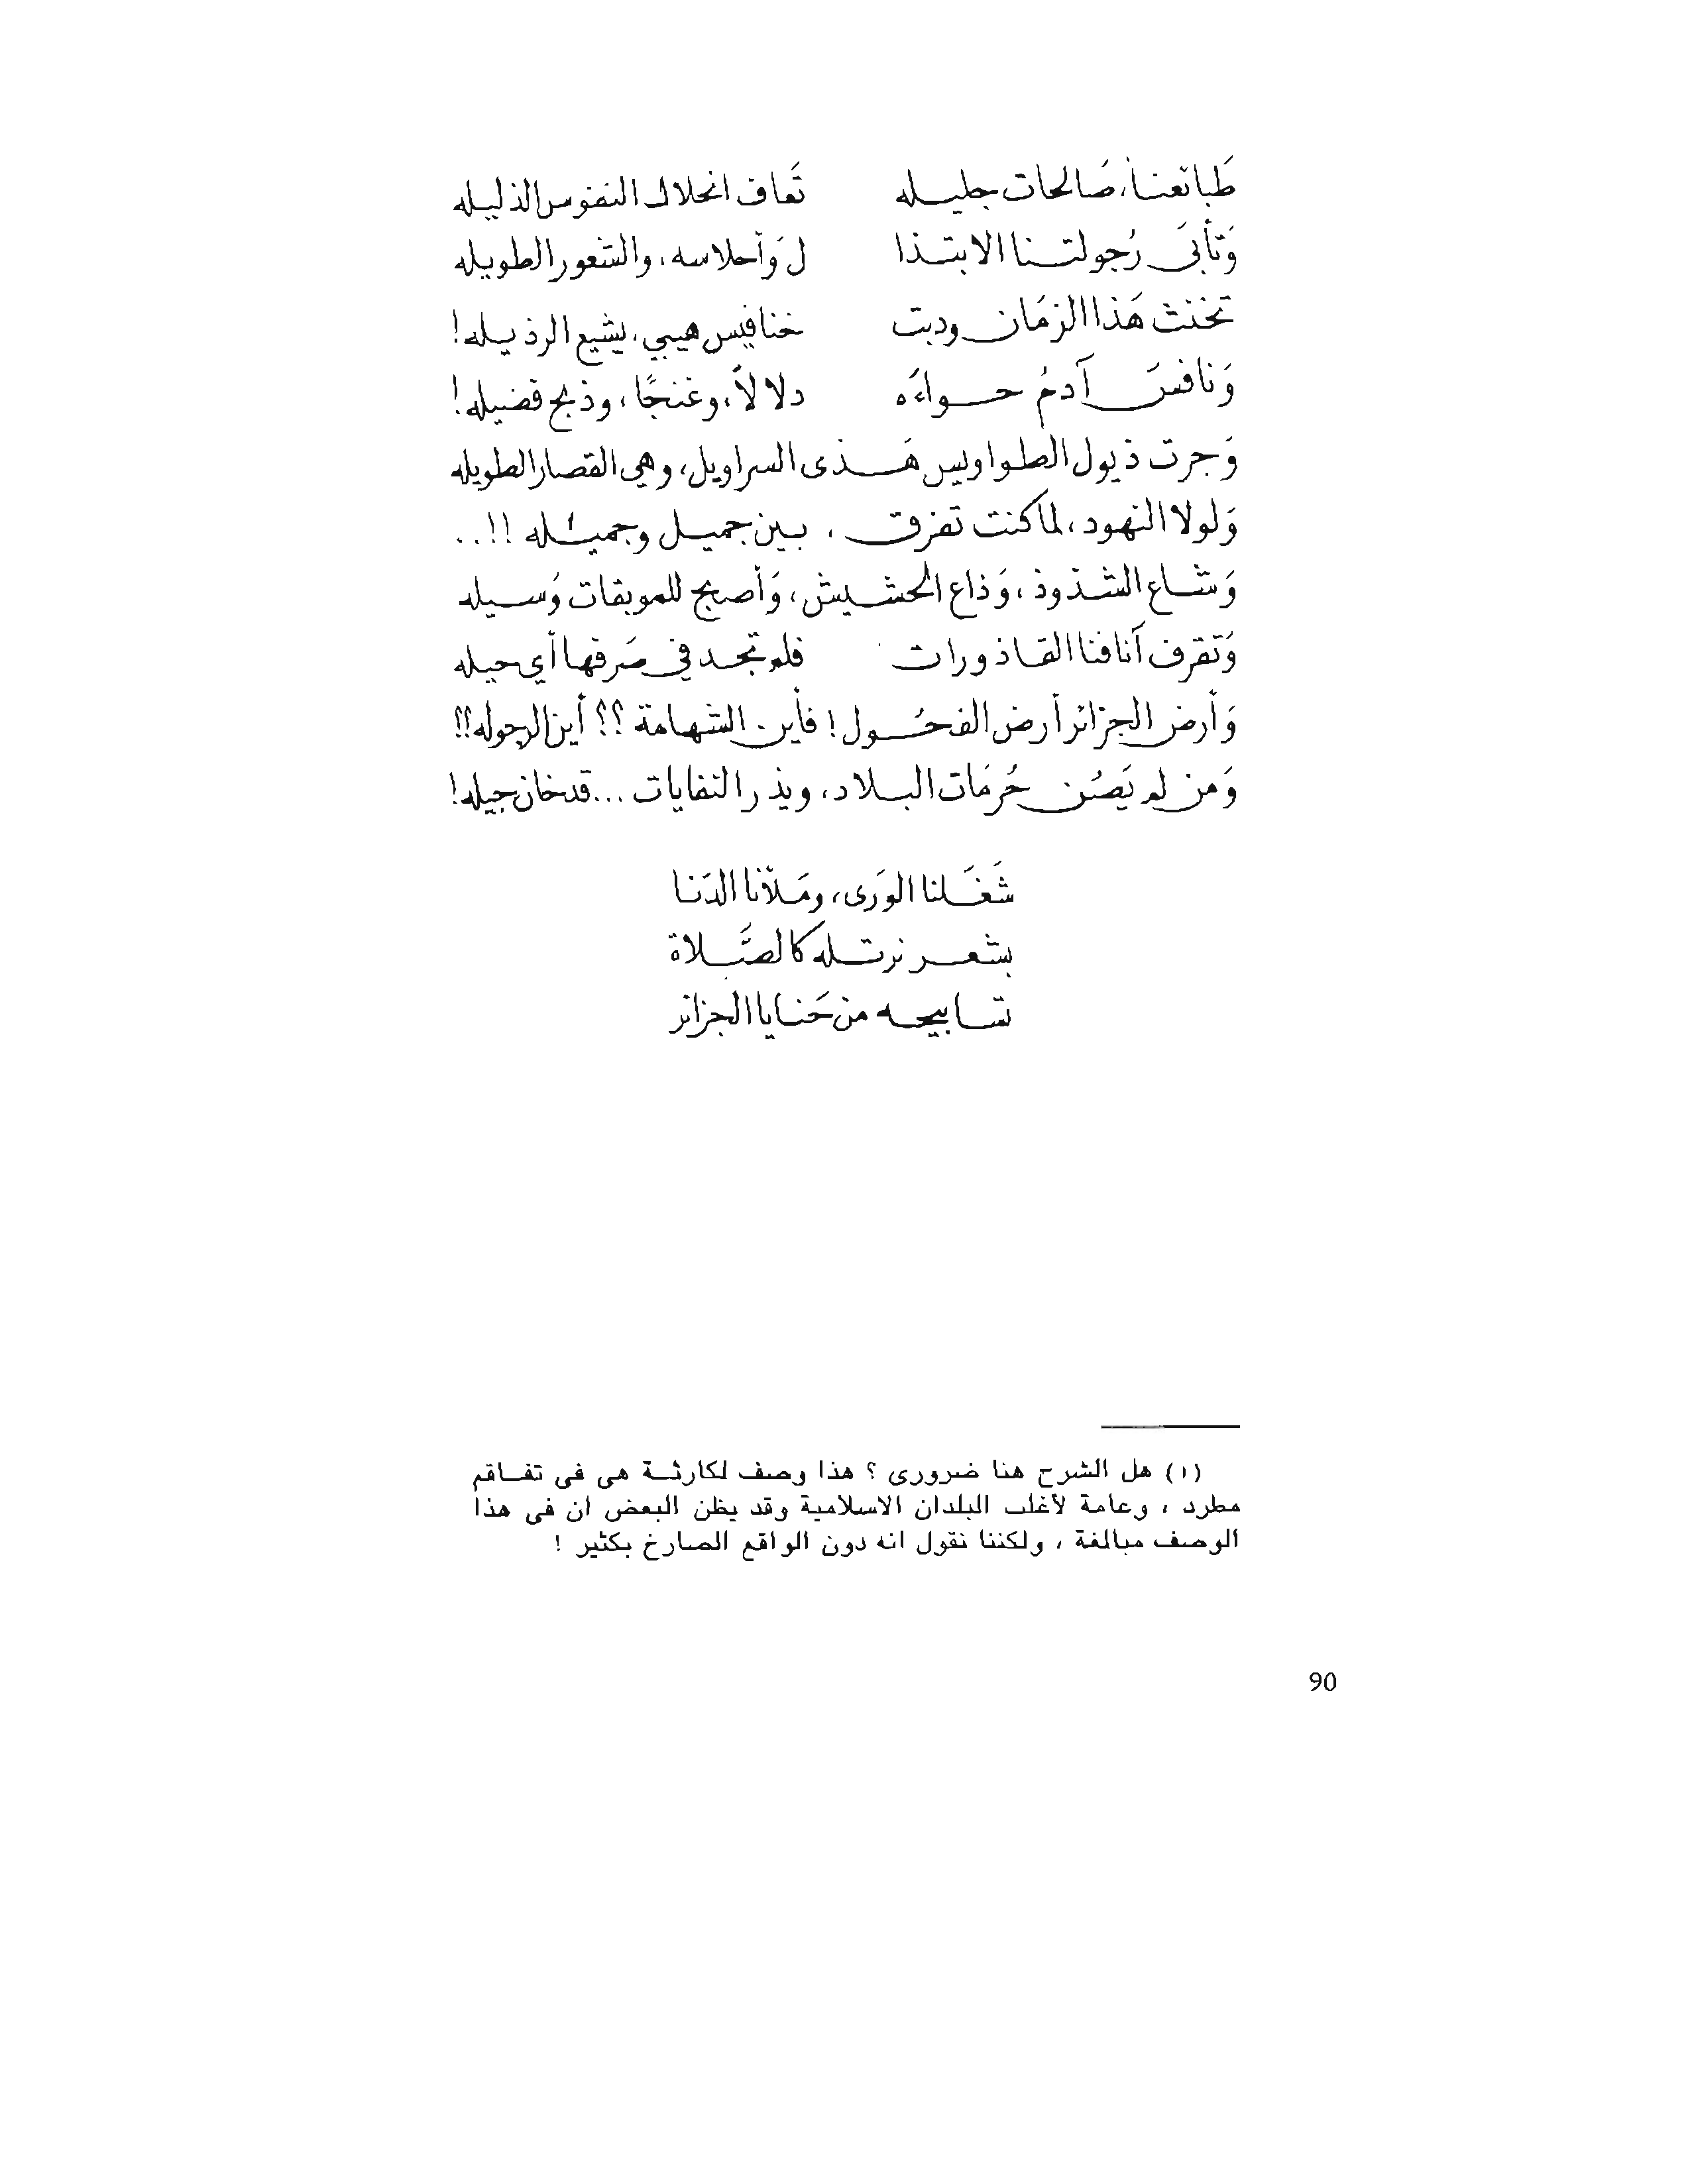 طَبائعنا، صَالحات جليله تَعاف انحلال النفوس الذليله
وَتأبىَ رُجولتنا الابتذا ل وَأحلاسه، والشعور الطويله
تخنث هَذا الزمَان ودبت خنافيس هيبي، يشيع الرذيله!
وَنافسَ آدمُ حواءَه دلالاً، وغنجًا، وذبح فضيله!
وَجرت ذيول الطواويس هَذى السراويل، وهي القصار الطويله
وَلولا النهود، لما كنت تفرق، بين جميل وجميله!!..
وَشاع الشذوذ، وَذاع الحشيش، وَأصبح للموبقات وَسيله
وَتقرف آنافنا القاذورات فلم تجد في صَرفها أي حيله
وَأرض الجزائر أرض الفحُول! فأين الشهامة؟؟ أين الرجوله؟!
وَمن لم يَصُن حُرمَات البلاد، ويذر النفايات... قد خان جيله!
شَغَلنا الوَرى، ومَلأنا الدَنا
بشعر نرتله كالصَّلاة
تسابيحه من حَنايا الجزائر
(١) هل الشرح هنا ضرورى ؟ هذا وصف لكارثة هى فى تفاقم
مطرد ، وعامة لأغلب البلدان الاسلامية وقد يظن البعض ان فى هذا
الوصف مبالغة ، ولكننا نقول انه دون الواقع الصارخ بكثير !
90